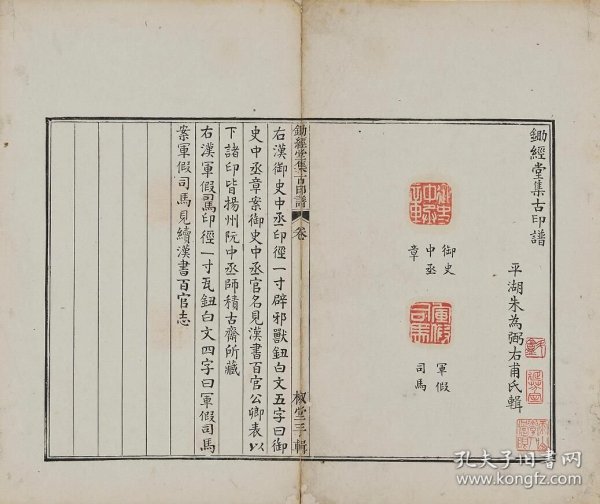 鋤經堂集古印譜
平湖朱為弼右甫氏輯
御史
中丞
章
軍假
司馬
鋤經堂集古印譜
卷
椒堂手輯
右漢御史中丞印徑一寸辟邪獸鈕白文五字曰御
史中丞章案御史中丞官名見漢書百官公卿表以
下諸印皆揚州阮中丞師積古齋所藏
右漢軍假司馬印徑一寸瓦鈕白文四字曰軍假司馬
案軍假司馬見續漢書百官志
孔夫子旧书网